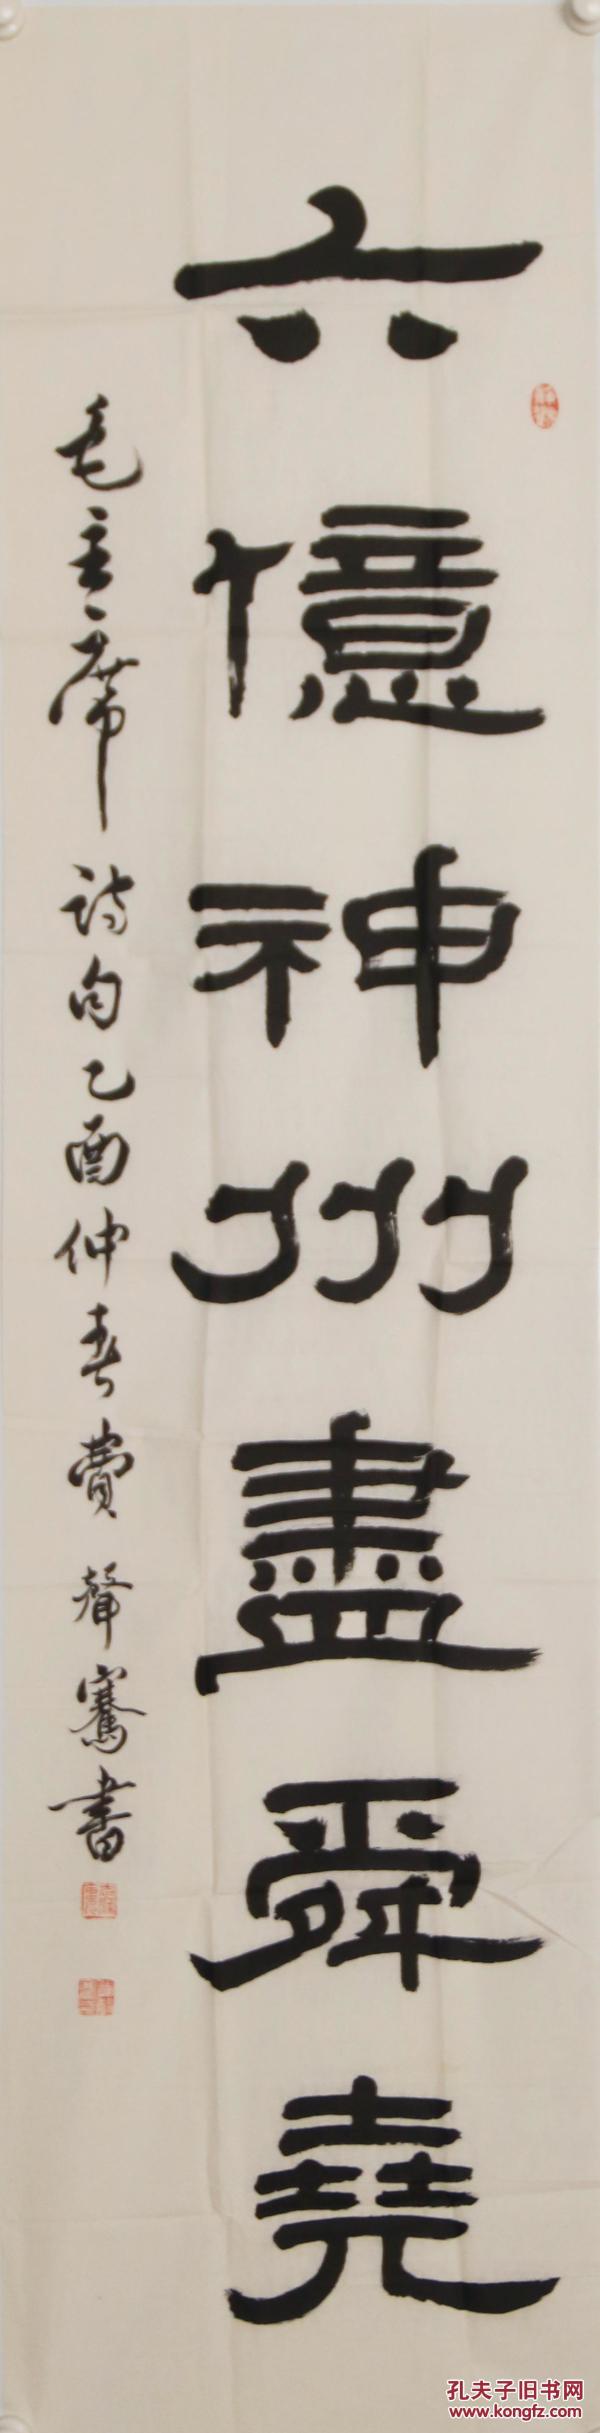 六億神州盡舜堯
毛主席詩句乙酉仲春費聲騫書
孔夫子旧书网
www.kongfz.com